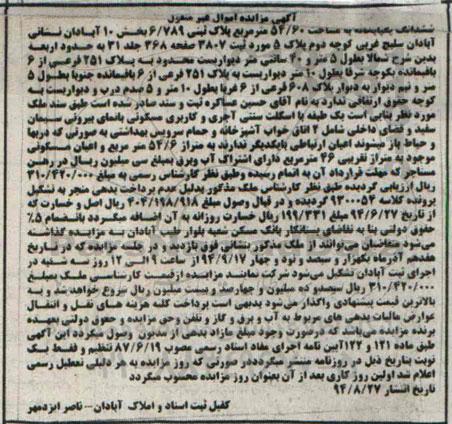 آگهی مزایده اموال غیر منقول
ششدانگ یکبابخانه به مساحت ۵۴/۶۰ مترمربع پلاک ثبتی ۶/۷۸۹ بخش ۱۰ آبادان نشانی
آبادان سلیچ غربی کوچه دوم پلاک ۵ مورد ثبت ۳۸۰۷ صفحه ۳۶۸ جلد ۳۱ به حدود اربعه
بدین شرح شمالا بطول ۵ متر و ۴۰ سانتی متر دیواریست محدود به پلاک ۲۵۱ فرعی از ۶
باقیمانده یکوجه شرقا بطول ۱۰ متر دیواریست به پلاک ۲۵۱ فرعی از ۶ باقیمانده جنوبا بطول ۵
متر و نیم دیوار به دیوار پلاک ۶۰۸ فرعی از ۶ غربا بطول ۱۰ متر و ۵ صدم درب و دیواریست به
کوچه حقوق ارتفاقی ندارد به نام آقای حسین عساکره ثبت و سند صادر شده است طبق سند ملک
مورد نظر بنایی است یک طبقه با اسکلت سنتی آجری و کاربری مسکونی بانمای بیرونی سیمان
سفید و فضای داخلی شامل ۲ اتاق خواب آشپزخانه و حمام سرویس بهداشتی به صورتی که دربها
و حیاط باز میشوند اعیان ارتباطی بایکدیگر ندارند به متراژ ۵۴/۶ متر مربع و اعیان مسکونی
موجود به متراژ تقریبی ۴۶ مترمربع دارای اشتراک آب وبرق بمبلغ سی میلیون ریال در رهن
مستاجر که مهلت قرارداد آن به اتمام رسیده وطبق نظر کارشناس رسمی به مبلغ ۳۱۰/۴۲۰/۰۰۰
ریال ارزیابی گردیده طبق نظر کارشناس ملک مذکور بدلیل عدم پرداخت بدهی منجر به تشکیل
پرونده کلاسه ۹۳۰۰۰۵۴ گردیده و در قبال وصول مبلغ ۴۰۴/۱۹۸/۹۱۸ ریال اصل و خسارت که
از تاریخ ۹۴/۶/۲۷ مبلغ ۱۹۹/۳۳۱ ریال خسارت روزانه به آن اضافه میگردد بانضمام ۵٪
حقوق دولتی بنا به تقاضای بستانکار بانک مسکن شعبه بلوار طیب آبادان به مزایده گذاشته
می‌شود متقاضیان می‌توانند از ملک مذکور بنشانی فوق بازدید و در جلسه مزایده که در تاریخ
هفدهم آذرماه یکهزار و سیصد و نود و چهار ۹۴/۹/۱۷ از ساعت ۹ الی ۱۲ روز سه شنبه در
اجرای ثبت آبادان تشکیل می‌شود شرکت نمایند مزایده ازقیمت کارشناسی ملک بمبلغ
۳۱۰/۴۲۰/۰۰۰ ریال /سیصدو ده میلیون و چهارصد و بیست میلیون ریال شروع خواهدشد و به
بالاترین قیمت پیشنهادی واگذار می‌شود بدیهی است پرداخت کلیه هزینه های نقل و انتقال
عوارض مالیات بدهی های مربوط به آب و برق و گاز و تلفن وحق مزایده و حقوق دولتی بعهده
برنده مزایده می‌باشد که درصورت وجود مبلغ مازاد بدهی از مدیون وصول میگردد این آگهی
طبق ماده ۱۲۱ و ۱۲۲آیین نامه اجرای مفاد اسناد رسمی مصوب ۸۷/۶/۱۹ تنظیم و فقط یک
نوبت بتاریخ ذیل در روزنامه منتشر میگردددر صورتی که روز مزایده به هر دلیلی تعطیل رسمی
اعلام شد اولین روز کاری بعد از آن بعنوان روز مزایده محسوب میگردد
تاریخ انتشار ۹۴/۸/۲۷
کفیل ثبت اسناد و املاک آبادان-- ناصر ایزدمهر